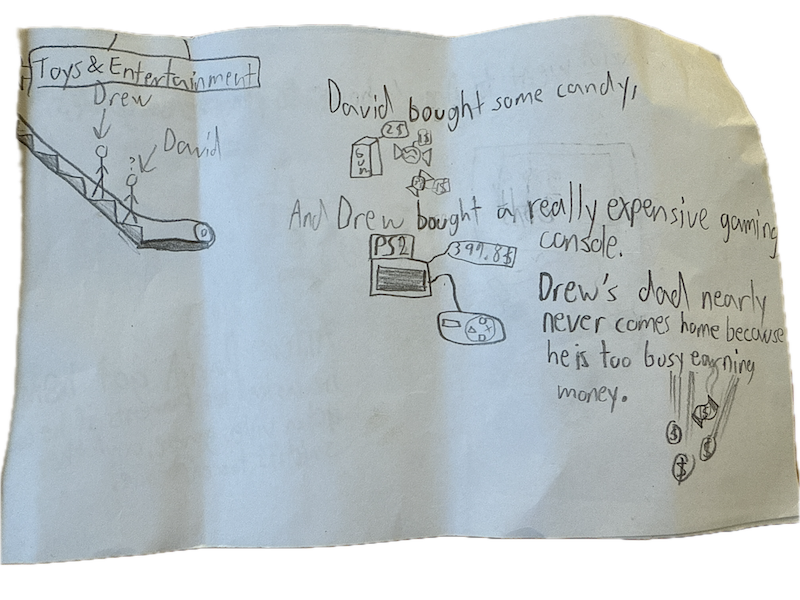 Toys & Entertainment
Drew
David
?
David bought some candy,
2$
1$
GUM
1$
And Drew bought a really expensive gaming
console.
PS2
399.8$
Drew's dad nearly
never comes home because
he is too busy earning
money.
$
$
$